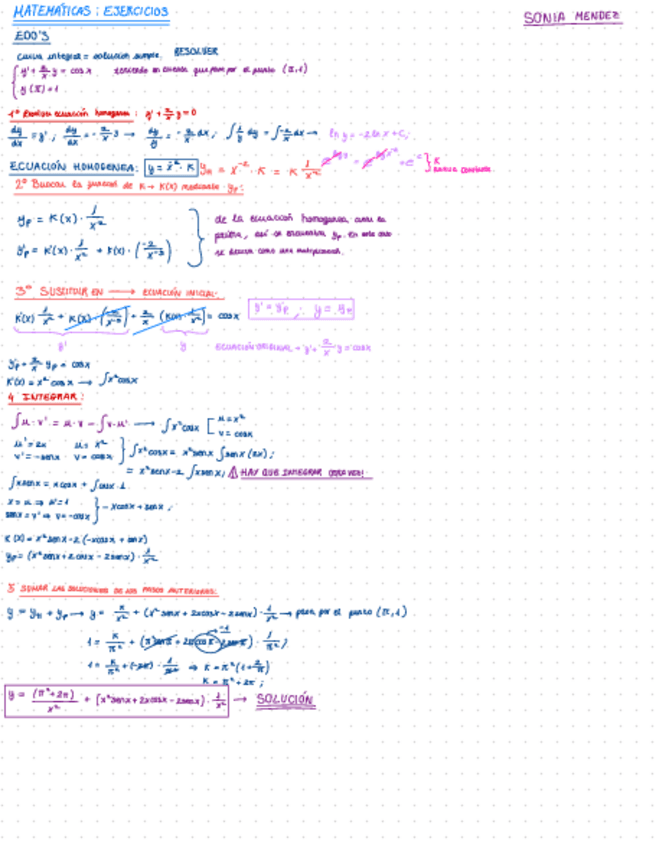 MATEMÁTICAS : EJERCICIOS
SONIA MENDEZ
EDO'S
curva integral = solución simple. RESOLVER
y' + 2/x y = cos x teniendo en cuenta que pase por el punto (π,1)
y(π) = 1
1º Resolver ecuación homogenea : y' + 2/x y = 0
dy/dx = y' ; dy/dx = - 2/x y → dy/y = - 2/x dx ; ∫ 1/y dy = ∫ - 2/x dx → ln y = -2 ln x + C;
ECUACIÓN HOMOGENEA: y = x⁻² · K yₕ = x⁻² · K = K 1/x²
2º Buscar la función de K → K(x) mediante yₚ:
yₚ = K(x) · 1/x²
y'ₚ = K'(x) · 1/x² + K(x) · (-2/x⁻³)
de la ecuación homogenea,
se encuentra yₚ. En este caso
se deriva como una multiplicación.
3º SUSTITUIR EN → ECUACIÓN INICIAL:
K'(x) 1/x² + K(x) (-2/x⁻³) + 2/x (K(x) 1/x²) = cos x y' = y'ₚ ; y = yₚ
y' y ECUACIÓN ORIGINAL = y' + 2/x y = cos x
y'ₚ + 2/x yₚ = cos x
K'(x) = x² cos x → ∫x² cos x
4 INTEGRAR :
∫u · v' = u · v - ∫v · u' → ∫x² cos x [ u = x²
v = cos x
u' = 2x u = x²
v' = -sen x v = cos x
∫x² cos x = x² sen x ∫sen x (2x) ;
= x² sen x - 2 ∫x sen x; ⚠ HAY QUE INTEGRAR OTRA VEZ!
∫x sen x = x cos x + ∫cos x · 1
x = u ⇒ u' = 1
sen x = v' ⇒ v = -cos x } - x cos x + sen x ;
K(x) = x² sen x - 2 (-x cos x + sen x)
yₚ = (x² sen x + 2 cos x - 2 sen x) · 1/x²
5 SUMAR LAS SOLUCIONES DE LOS PASOS ANTERIORES:
y = yₕ + yₚ → y = K/x² + (x² sen x + 2x cos x - 2 sen x) · 1/x² → pasa por el punto (π,1)
1 = K/π² + (π² sen π + 2π cos π - 2 sen π) · 1/π² ;
-1
1 = K/π² + (-2π) · 1/π² ⇒ K = π² (1 + 2/π)
K = π² + 2π ;
y = (π² + 2π)/x² + (x² sen x + 2x cos x - 2 sen x) · 1/x² → SOLUCIÓN